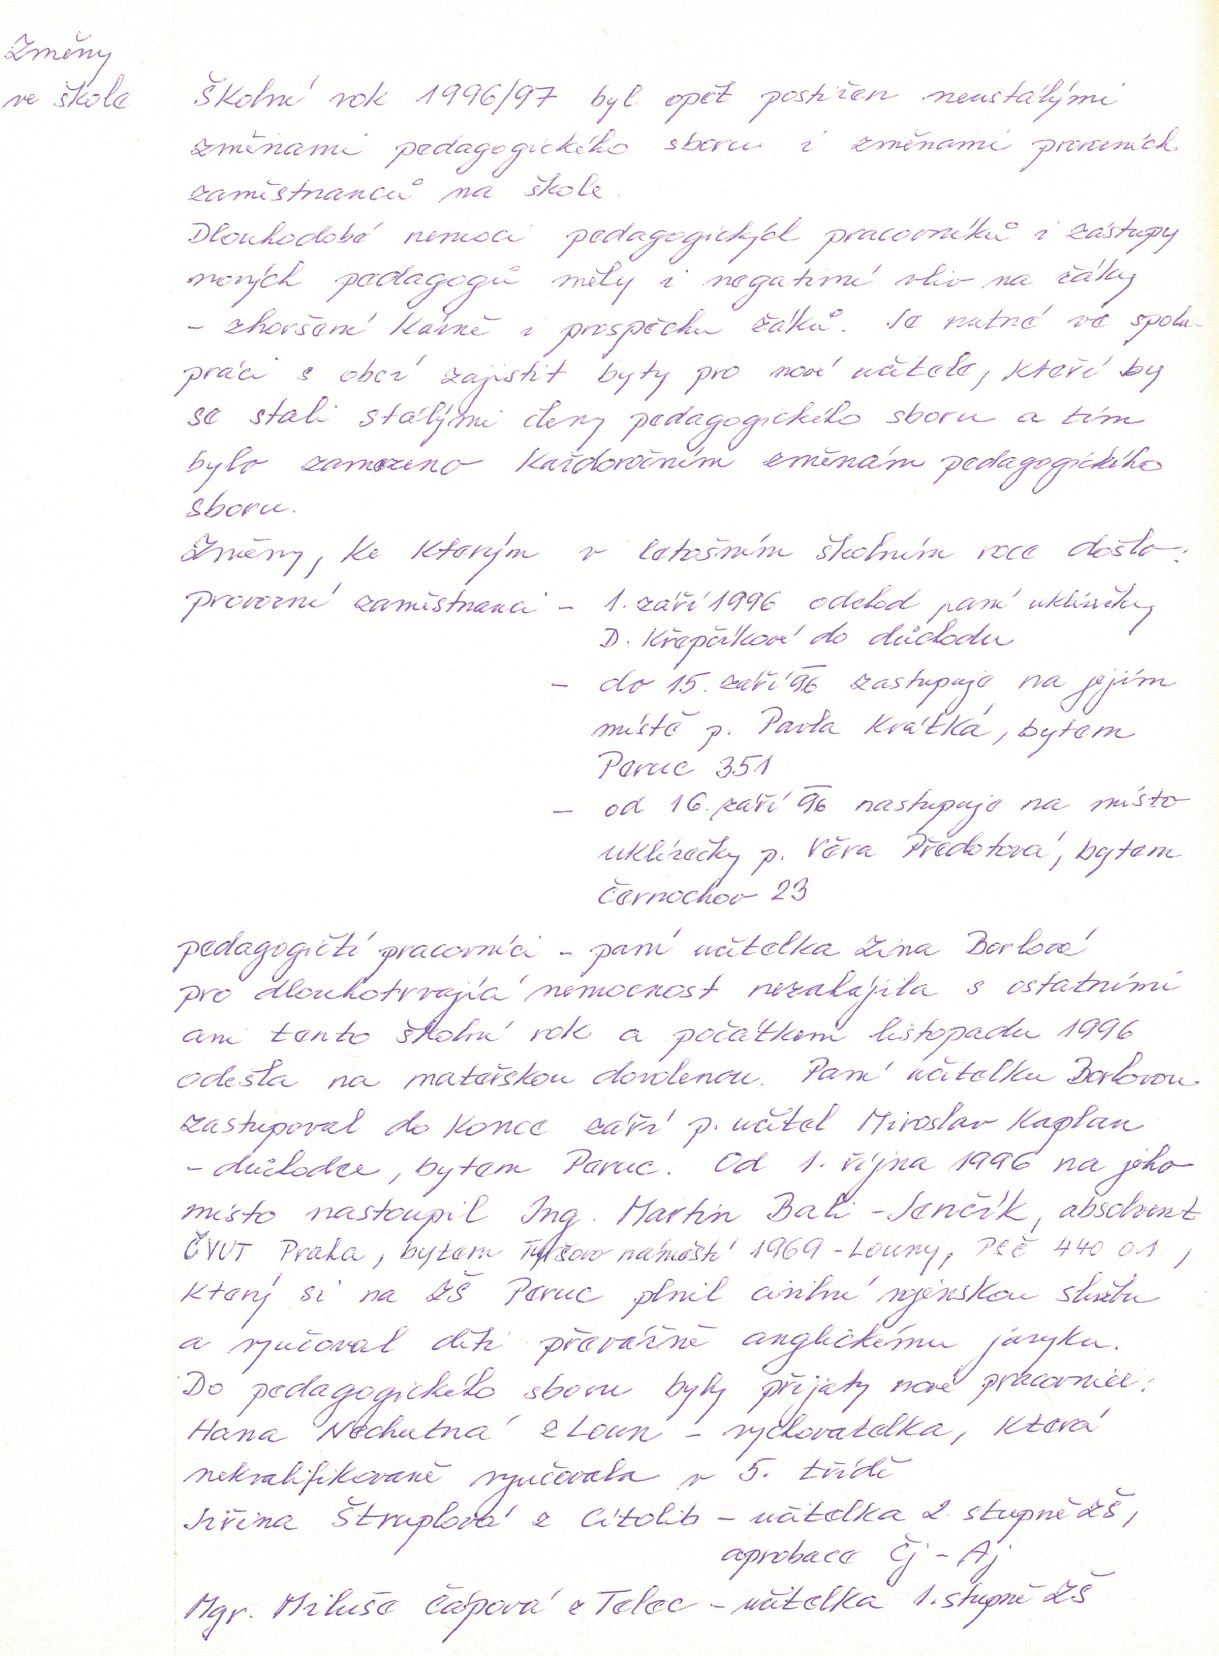 Změny
ve škole
Školní rok 1996/97 byl opět postižen neustálými
změnami pedagogického sboru i změnami provozních
zaměstnanců na škole.
Dlouhodobé nemoci pedagogických pracovníků i zástupy
nových pedagogů měly i negativní vliv na žáky
- zhoršení kázně i prospěchu žáků. Je nutné ve spolu-
práci s obcí zajistit byty pro nové učitele, kteří by
se stali stálými členy pedagogického sboru a tím
bylo zamezeno každoročním změnám pedagogického
sboru.
Změny, ke kterým v letošním školním roce došlo:
provozní zaměstnanci - 1. září 1996 odchod paní uklízečky
D. Křepčíkové do důchodu
- do 15. září 96 zastupuje na jejím
místě p. Pavla Krátká, bytem
Peruc 351
- od 16. září 96 nastupuje na místo
uklízečky p. Věra Předotová, bytem
Černochov 23
pedagogičtí pracovníci - paní učitelka Zina Borlové
pro dlouhotrvající nemocnost nezahájila s ostatními
ani tento školní rok a počátkem listopadu 1996
odešla na mateřskou dovolenou. Paní učitelku Borlovou
zastupoval do konce září p. učitel Miroslav Kaplan
- důchodce, bytem Peruc. Od 1. října 1996 na jeho
místo nastoupil Ing. Martin Bali - Jenčík, absolvent
ČVUT Praha, bytem Tyršovo náměstí 1969 - Louny, PSČ 440 01,
který si na ZŠ Peruc plnil civilní vojenskou službu
a vyučoval děti převážně anglickému jazyku.
Do pedagogického sboru byly přijaty nové pracovnice:
Hana Nechutná z Loun - vychovatelka, která
nekvalifikovaně vyučovala v 5. třídě
Jiřina Štruplová z Cítolib - učitelka 2. stupně ZŠ,
aprobace Čj - Aj
Mgr. Miluše Čápová z Telec - učitelka 1. stupně ZŠ